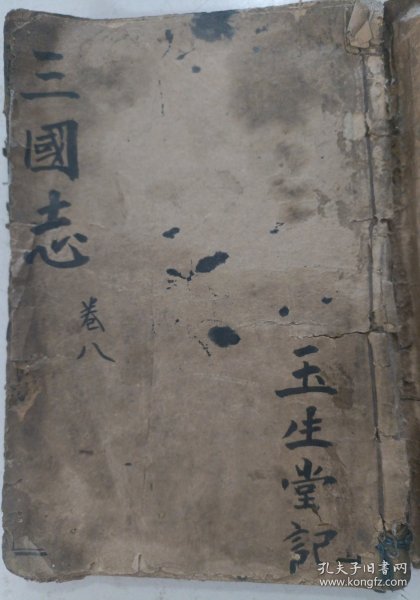 三國志
卷八
玉生堂記
孔夫子旧书网
www.kongfz.com